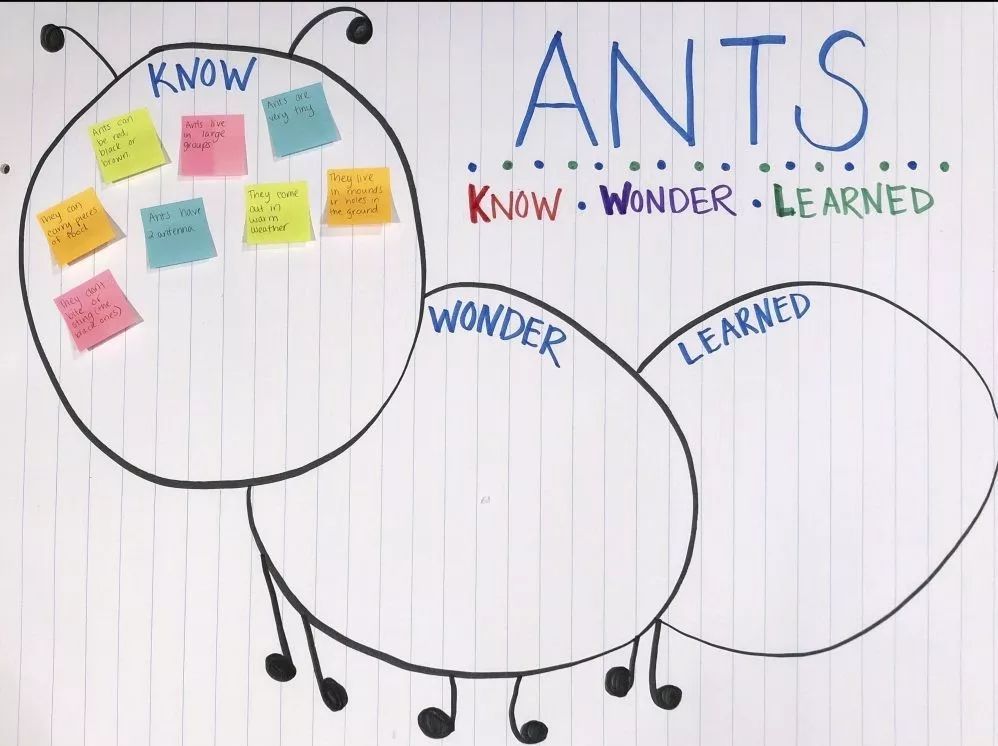 ANTS
KNOW • WONDER • LEARNED
KNOW
Ants can
be red,
black or
brown.
Ants live
in large
groups
Ants are
very tiny
They can
carry pieces
of food
Ants have
2 antenna
They come
out in
warm
weather
They live
in mounds
in holes in
the ground
They don't
bite or
sting (the
black ones)
WONDER
LEARNED